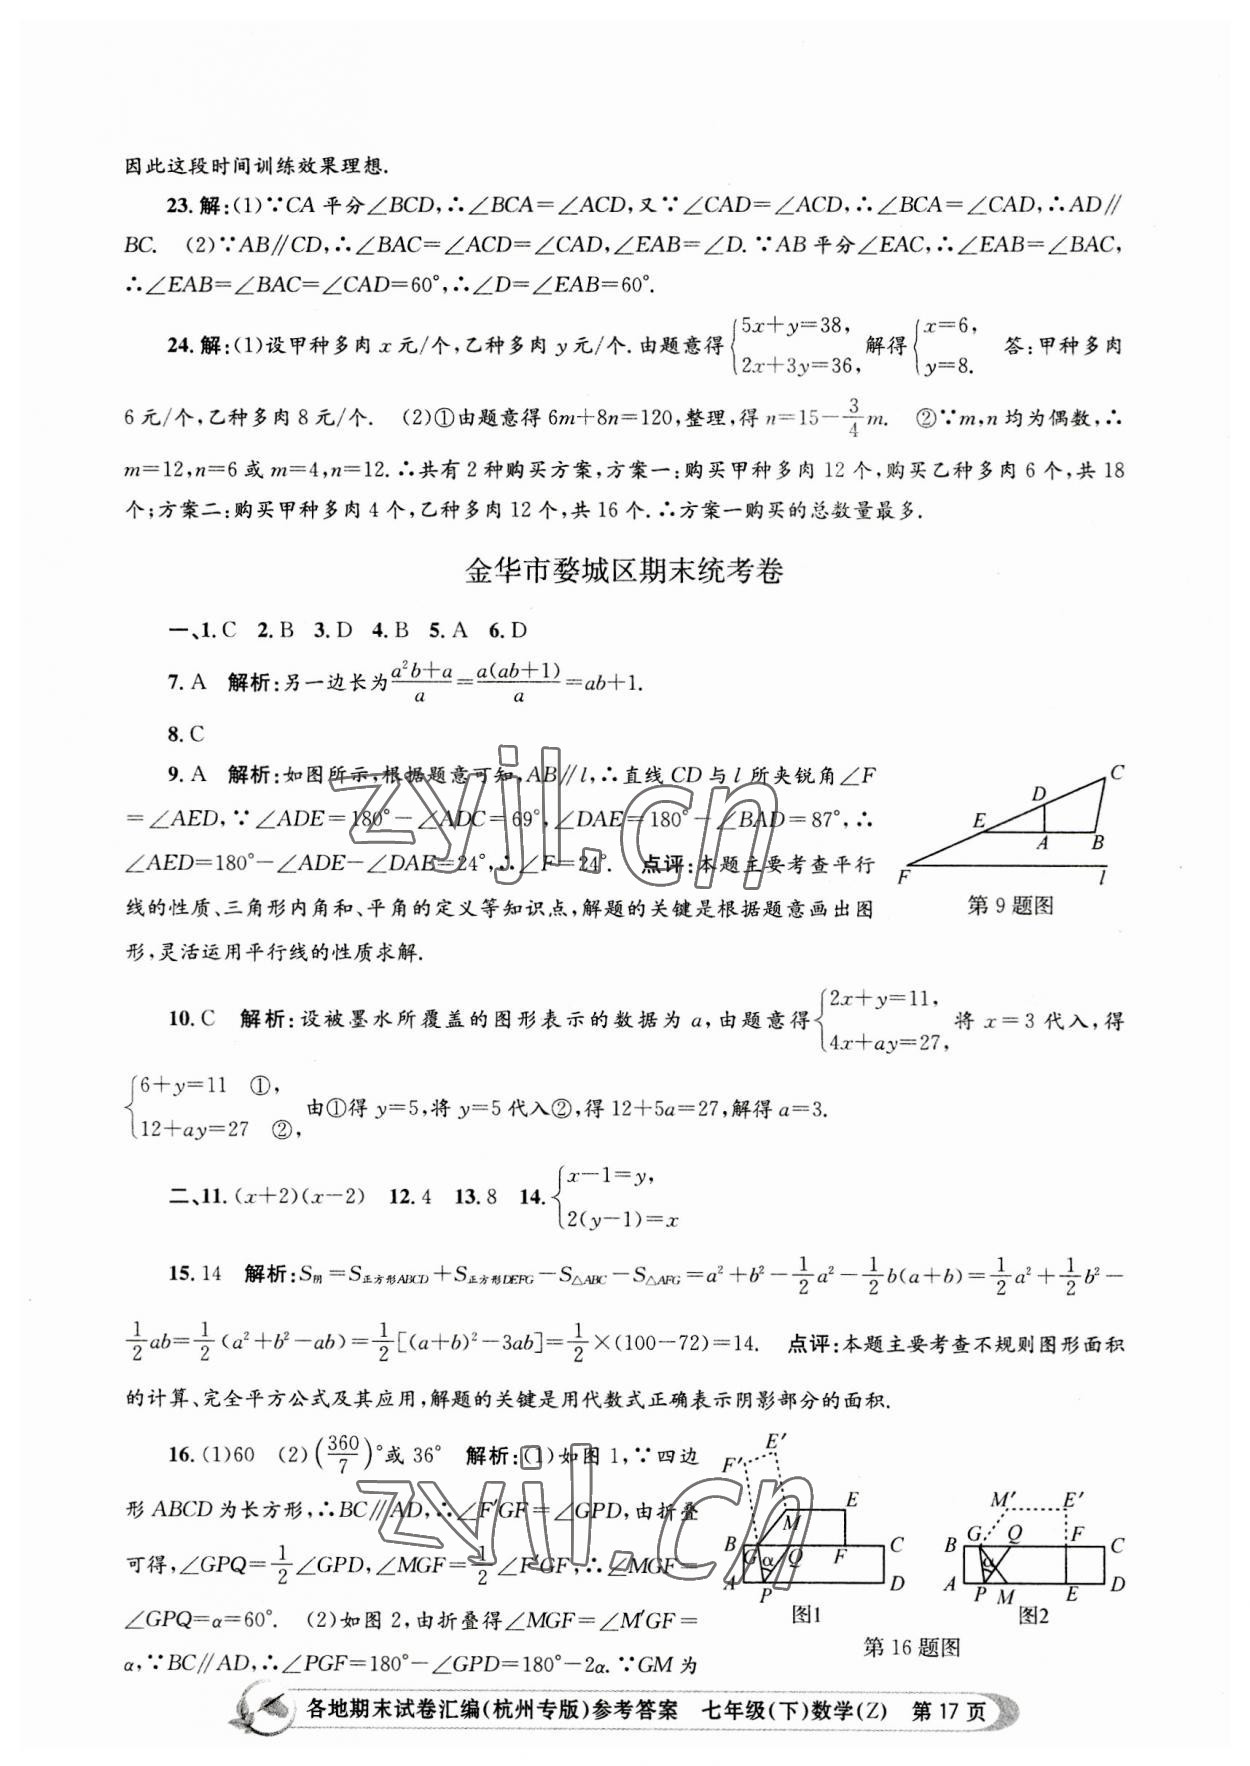 因此这段时间训练效果理想.
23.解:(1)∵CA 平分∠BCD,∴∠BCA=∠ACD,又∵∠CAD=∠ACD,∴∠BCA=∠CAD,∴AD∥
BC. (2)∵AB∥CD,∴∠BAC=∠ACD=∠CAD,∠EAB=∠D.∵AB 平分∠EAC,∴∠EAB=∠BAC,
∴∠EAB=∠BAC=∠CAD=60°,∴∠D=∠EAB=60°.
24.解:(1)设甲种多肉 x 元/个,乙种多肉 y 元/个.由题意得{5x+y=38, 2x+3y=36, 解得{x=6, y=8. 答:甲种多肉
6 元/个,乙种多肉 8 元/个. (2)①由题意得 6m+8n=120,整理,得 n=15-3/4 m. ②∵m,n 均为偶数,∴
m=12,n=6 或 m=4,n=12.∴共有 2 种购买方案,方案一:购买甲种多肉 12 个,购买乙种多肉 6 个,共 18
个;方案二:购买甲种多肉 4 个,乙种多肉 12 个,共 16 个.∴方案一购买的总数量最多.
金华市婺城区期末统考卷
一、1. C 2. B 3. D 4. B 5. A 6. D
7. A 解析:另一边长为(a²b+a)/a=a(ab+1)/a=ab+1.
8. C
9. A 解析:如图所示,根据题意可知,AB∥l,∴直线 CD 与 l 所夹锐角∠F
=∠AED,∵∠ADE=180°-∠ADC=69°,∠DAE=180°-∠BAD=87°,∴
∠AED=180°-∠ADE-∠DAE=24°,∴∠F=24°. 点评:本题主要考查平行
线的性质、三角形内角和、平角的定义等知识点,解题的关键是根据题意画出图
形,灵活运用平行线的性质求解.
C
D
E
A
B
F
l
第 9 题图
10. C 解析:设被墨水所覆盖的图形表示的数据为 a,由题意得{2x+y=11, 4x+ay=27, 将 x=3 代入,得
{6+y=11 ①, 12+ay=27 ②, 由①得 y=5,将 y=5 代入②,得 12+5a=27,解得 a=3.
二、11. (x+2)(x-2) 12. 4 13. 8 14. {x-1=y, 2(y-1)=x
15. 14 解析:S阴=S正方形ABCD+S正方形DEFG-S△ABC-S△AFG=a²+b²-1/2 a²-1/2 b(a+b)=1/2 a²+1/2 b²-
1/2 ab=1/2 (a²+b²-ab)=1/2 [(a+b)²-3ab]=1/2×(100-72)=14. 点评:本题主要考查不规则图形面积
的计算、完全平方公式及其应用,解题的关键是用代数式正确表示阴影部分的面积.
16. (1)60 (2)(360/7)°或 36° 解析:(1)如图 1,∵四边
形 ABCD 为长方形,∴BC∥AD,∴∠F′GF=∠GPD,由折叠
可得,∠GPQ=1/2∠GPD,∠MGF=1/2∠F′GF,∴∠MGF=
∠GPQ=α=60°. (2)如图 2,由折叠得∠MGF=∠M′GF=
α,∵BC∥AD,∴∠PGF=180°-∠GPD=180°-2α.∵GM 为
E′
F′
M
E
B
G
α
Q
F
C
A
P
D
图1
M′
E′
G
Q
F
B
C
α
A
P
M
E
D
图2
第 16 题图
zyjl.cn
zyjl.cn
各地期末试卷汇编(杭州专版)参考答案 七年级(下)数学(Z) 第 17 页